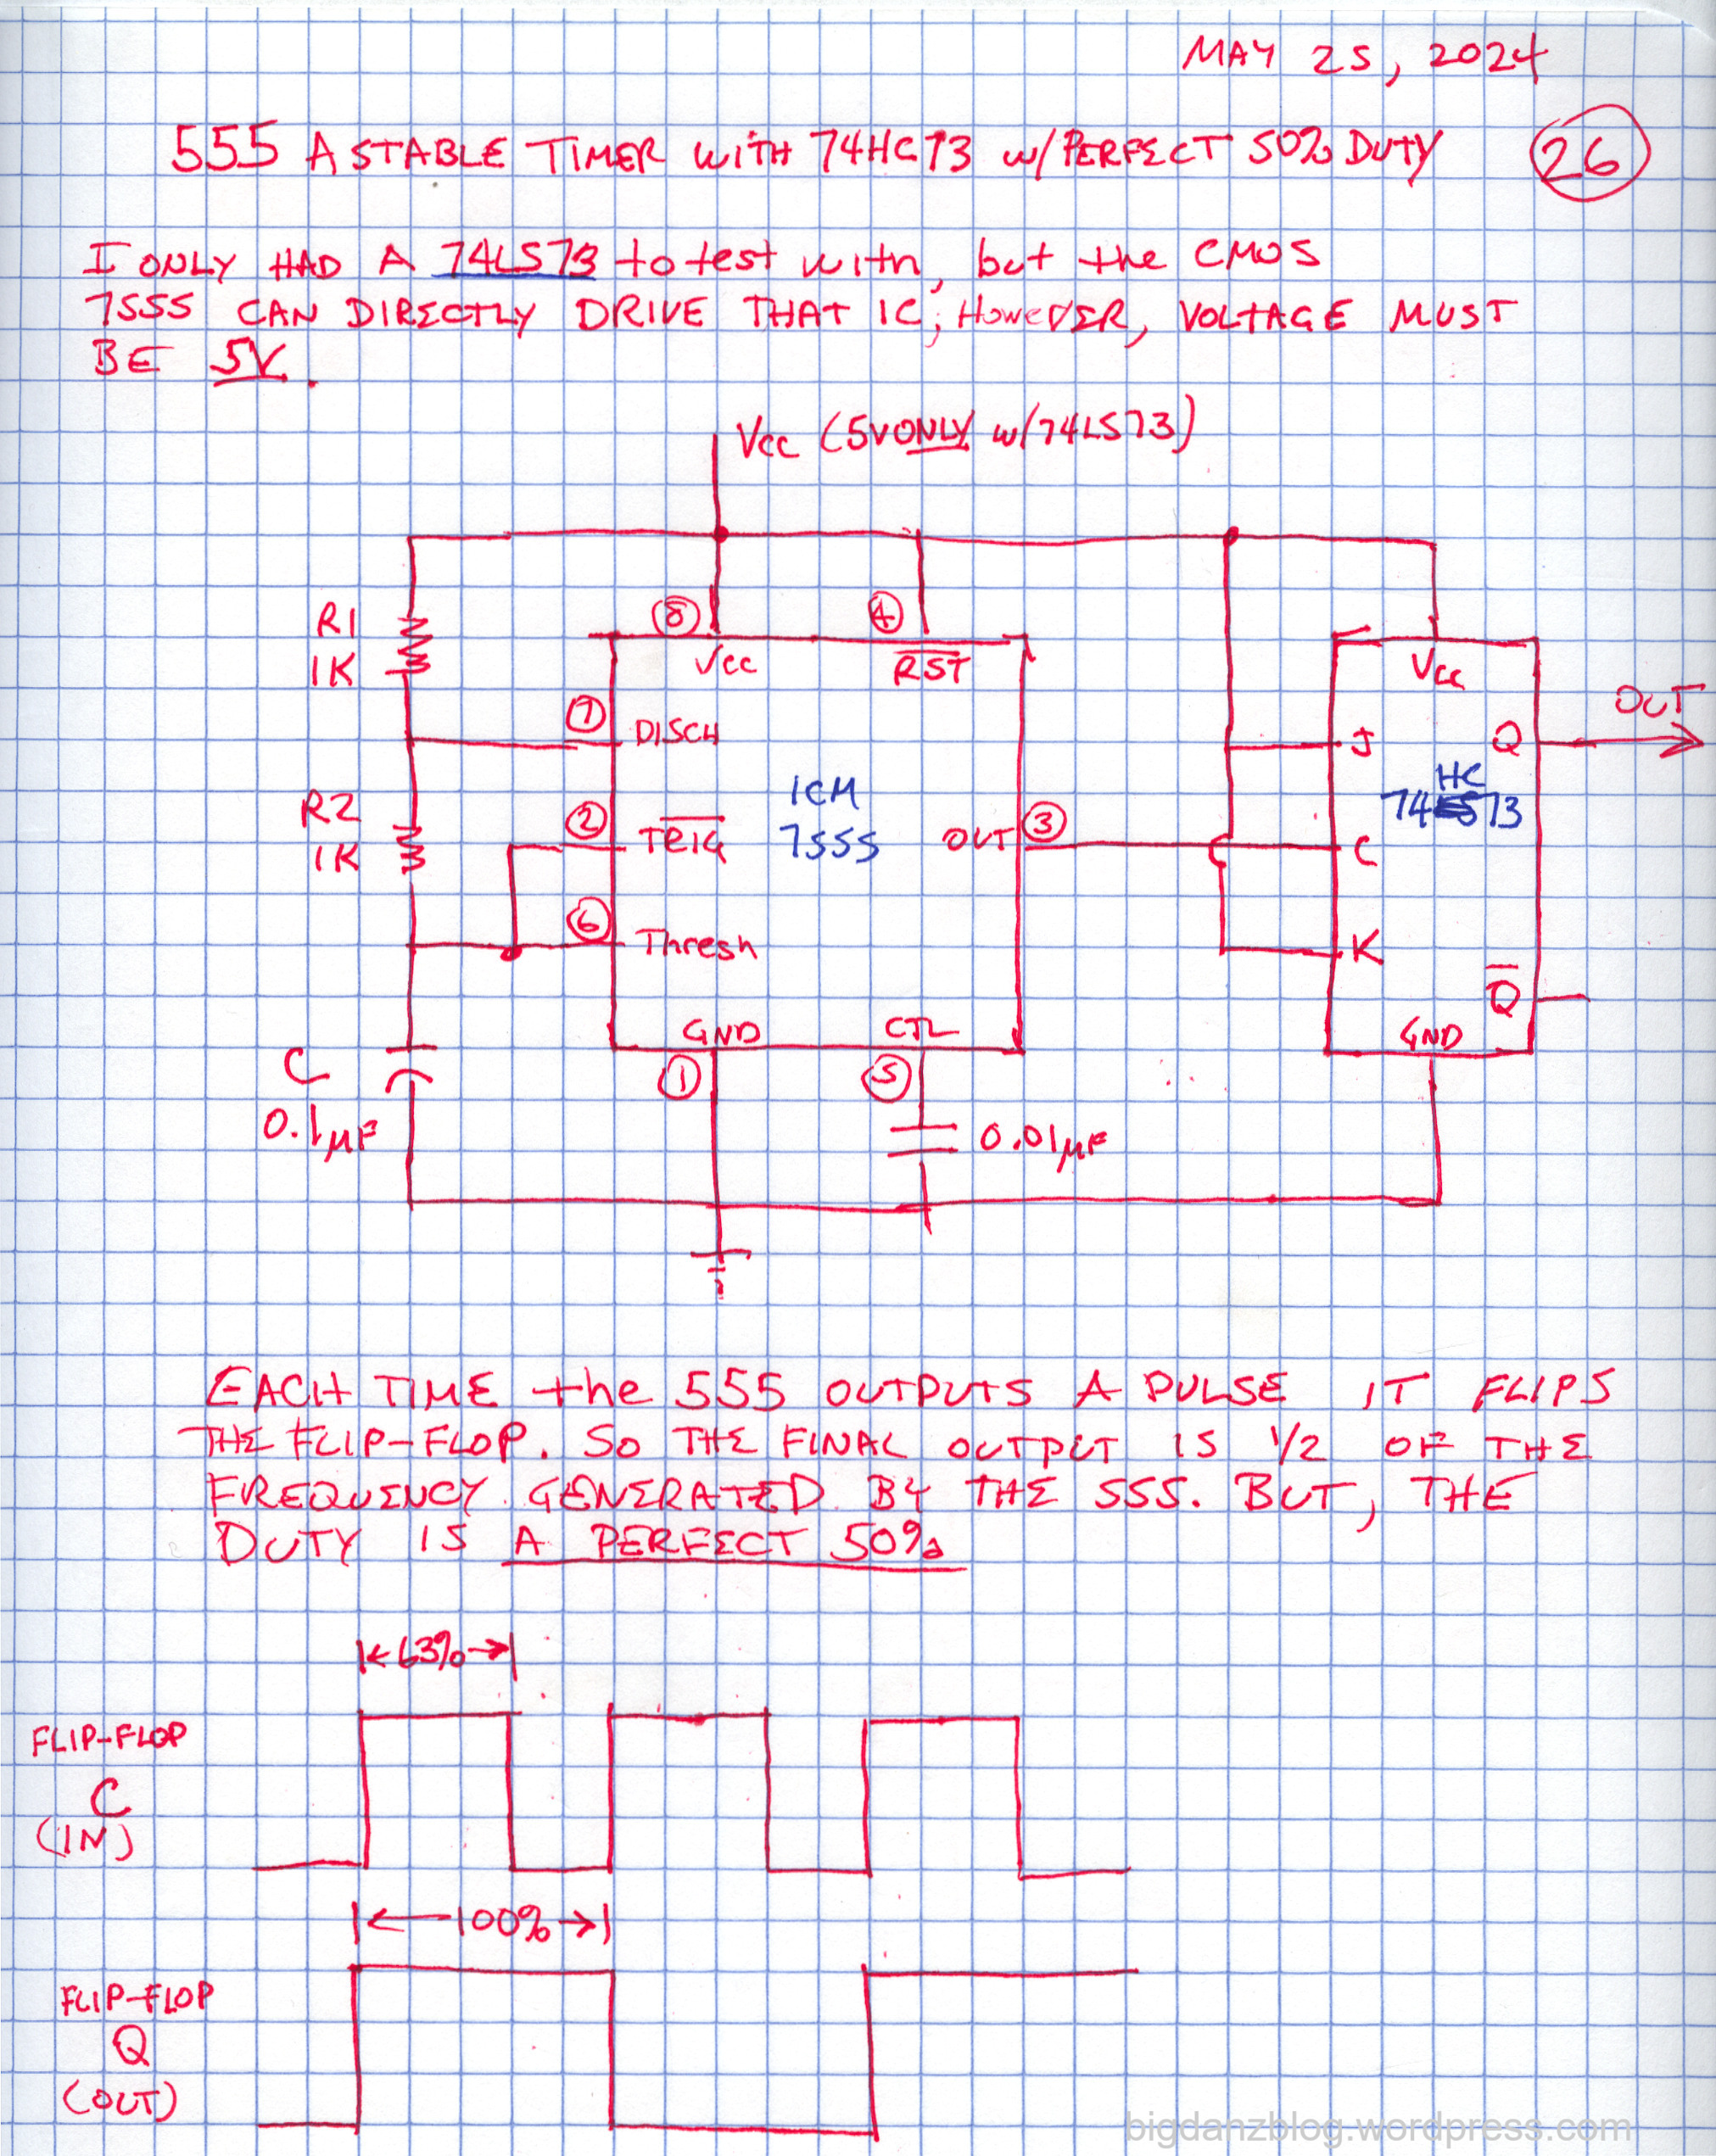 MAY 25, 2024
555 ASTABLE TIMER WITH 74HC73 w/PERFECT 50% DUTY
26
I ONLY HAD A 74LS73 to test with, but the CMOS
7555 CAN DIRECTLY DRIVE THAT IC; HOWEVER, VOLTAGE MUST
BE 5V.
Vcc (5V ONLY w/74LS73)
R1
1K
8
4
Vcc
RST
Vcc
OUT
7
DISCH
J
Q
R2
1K
2
TRIG
ICM
7555
OUT
3
HC
7473
C
6
Thresh
K
Q
GND
CTL
GND
1
5
C
0.1µF
0.01µF
EACH TIME the 555 OUTPUTS A PULSE IT FLIPS
THE FLIP-FLOP. SO THE FINAL OUTPUT IS 1/2 OF THE
FREQUENCY GENERATED BY THE 555. BUT, THE
DUTY IS A PERFECT 50%
63%
FLIP-FLOP
C
(IN)
100%
FLIP-FLOP
Q
(OUT)
bigdanzblog.wordpress.com